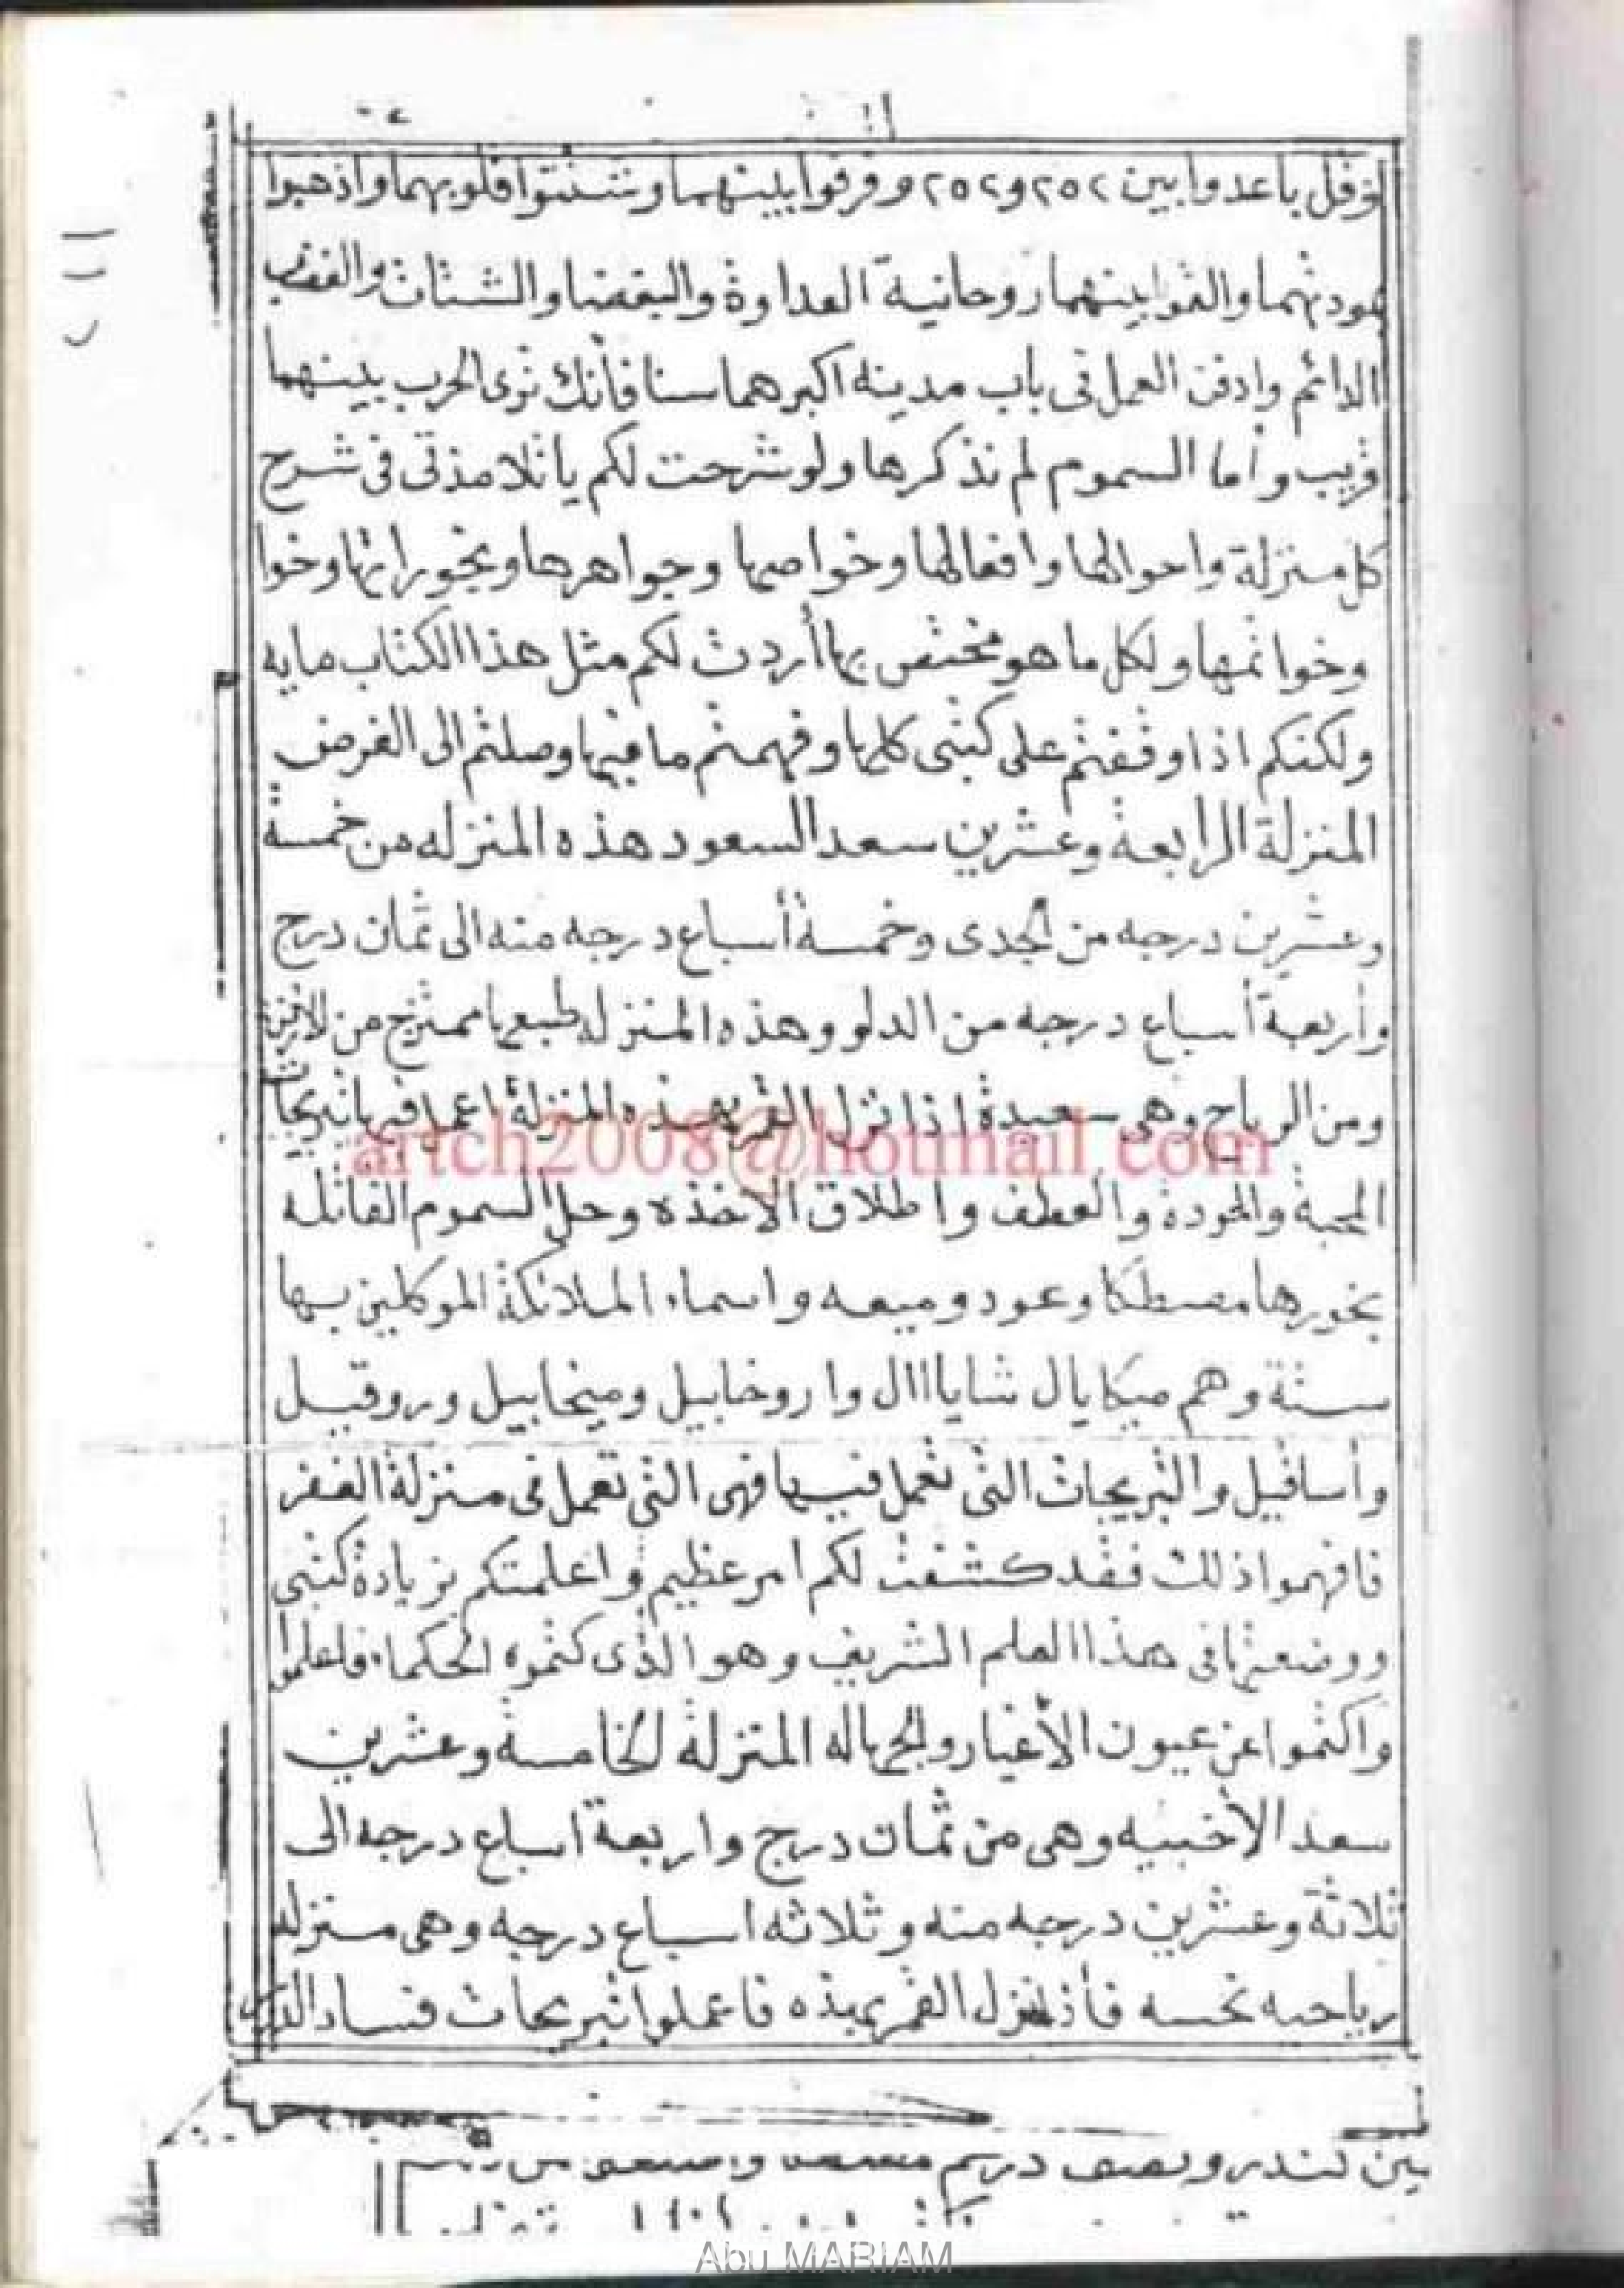 وقل باعدوا بين ٢٥٢ و ٢٥٢ وفرقوا بينهما وشتتوا قلوبهما واذهبوا
مودتهما والقوا بينهما روحانية العداوة والبغضا والشتات والغضب
الدائم وادفن العمل فى باب مدينه اكبرهما سنا فأنك ترى الحرب بينهما
قريب وأما السموم لم نذكرها ولو شرحت لكم يا تلامذتى فى شرح
كل منزلة واحوالها وافعالها وخواصها وجواهرها وبخوراتها وخوا
وخواتمها ولكل ما هو مختص بها أردت لكم مثل هذا الكتاب مايه
ولكنكم اذا وقفتم على كتبى كلها وفهمتم ما فيها وصلتم الى الغرض
المنزلة الرابعة وعشرين سعد السعود هذه المنزله من خمسة
وعشرين درجه من الجدى وخمسة أسباع درجه منه الى ثمان درج
وأربعة أسباع درجه من الدلو وهذه المنزله طبعها ممتزج من
ومن الرياح وهى سعيدة اذا نزل القمر بهذه المنزلة اعمل فيها
المحبة والمودة والعطف واطلاق الاخذه وحل السموم القاتله
بخورها مصطكا وعود وميعه واسماء الملائكة الموكلين بها
ستة وهم ميكايال شاياال واروخاييل وميخاييل وروقيل
وأسافيل والنيرنجات التى تعمل فيها فهى التى تعمل فى منزلة الغفر
فافهموا ذلك فقد كشفت لكم امر عظيم واعلمتكم بزيادة كتبى
ووضعتها فى هذا العلم الشريف وهو الذى كتموه الحكماء فاعلموا
واكتموا عن عيون الأغيار والجهاله المنزلة الخامسة وعشرين
سعد الأخبيه وهى من ثمان درج واربعة اسباع درجه الى
ثلاثة وعشرين درجه منه وثلاثه اسباع درجه وهى منزله
رياحيه نحسه فأذا نزل القمر بهذه فاعملوا نيرنجات فساد
ونصف درهم
٢١١
artch2008@hotmail.com
Abu MARIAM